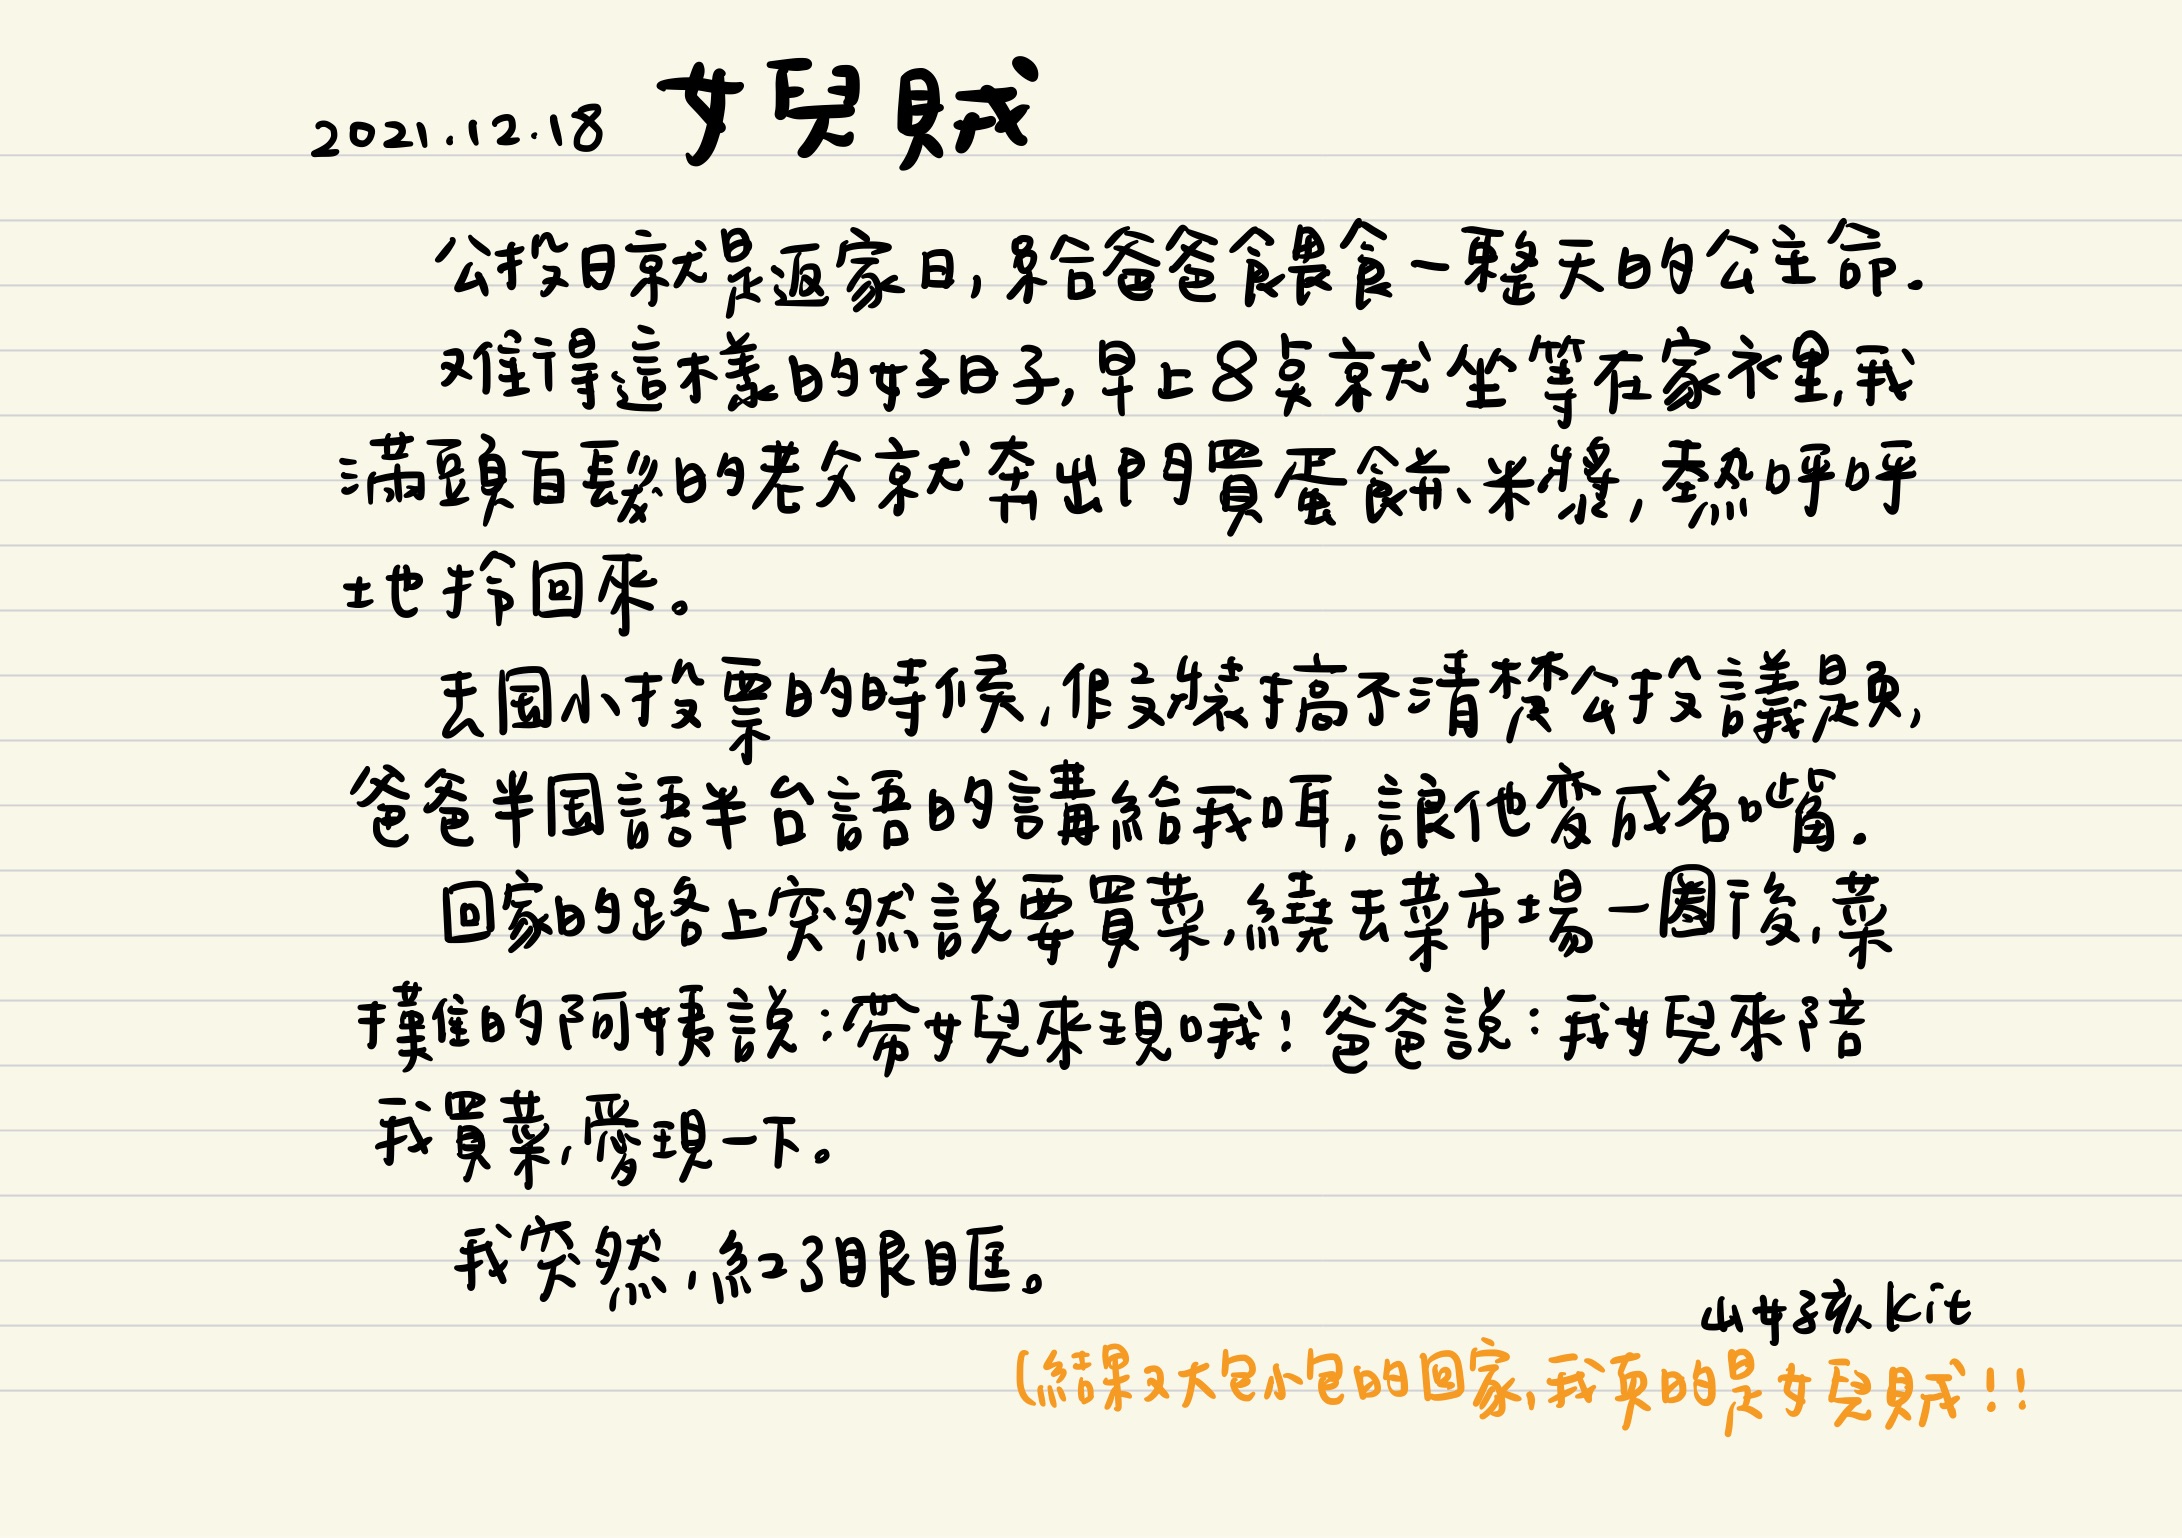 2021.12.18 女兒賊
公投日就是返家日,給爸爸餵食一整天的公主命.
难得這樣的好日子,早上8點就坐等在家裡,我
滿頭白髮的老父就奔出門買蛋餅、米漿,熱呼呼
地拎回來。
去國小投票的時候,假裝搞不清楚公投議題,
爸爸半國語半台語的講給我聽,讓他變成名嘴.
回家的路上突然說要買菜,繞去菜市場一圈後,菜
攤的阿姨說:帶女兒來現哦!爸爸說:我女兒來陪
我買菜,愛現一下。
我突然,紅了眼眶。
山女孩kit
(結果又大包小包的回家,我真的是女兒賊!!